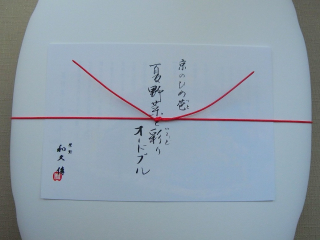 京のひめぜ
夏野菜と彩り
オードブル
紫野
和久傳